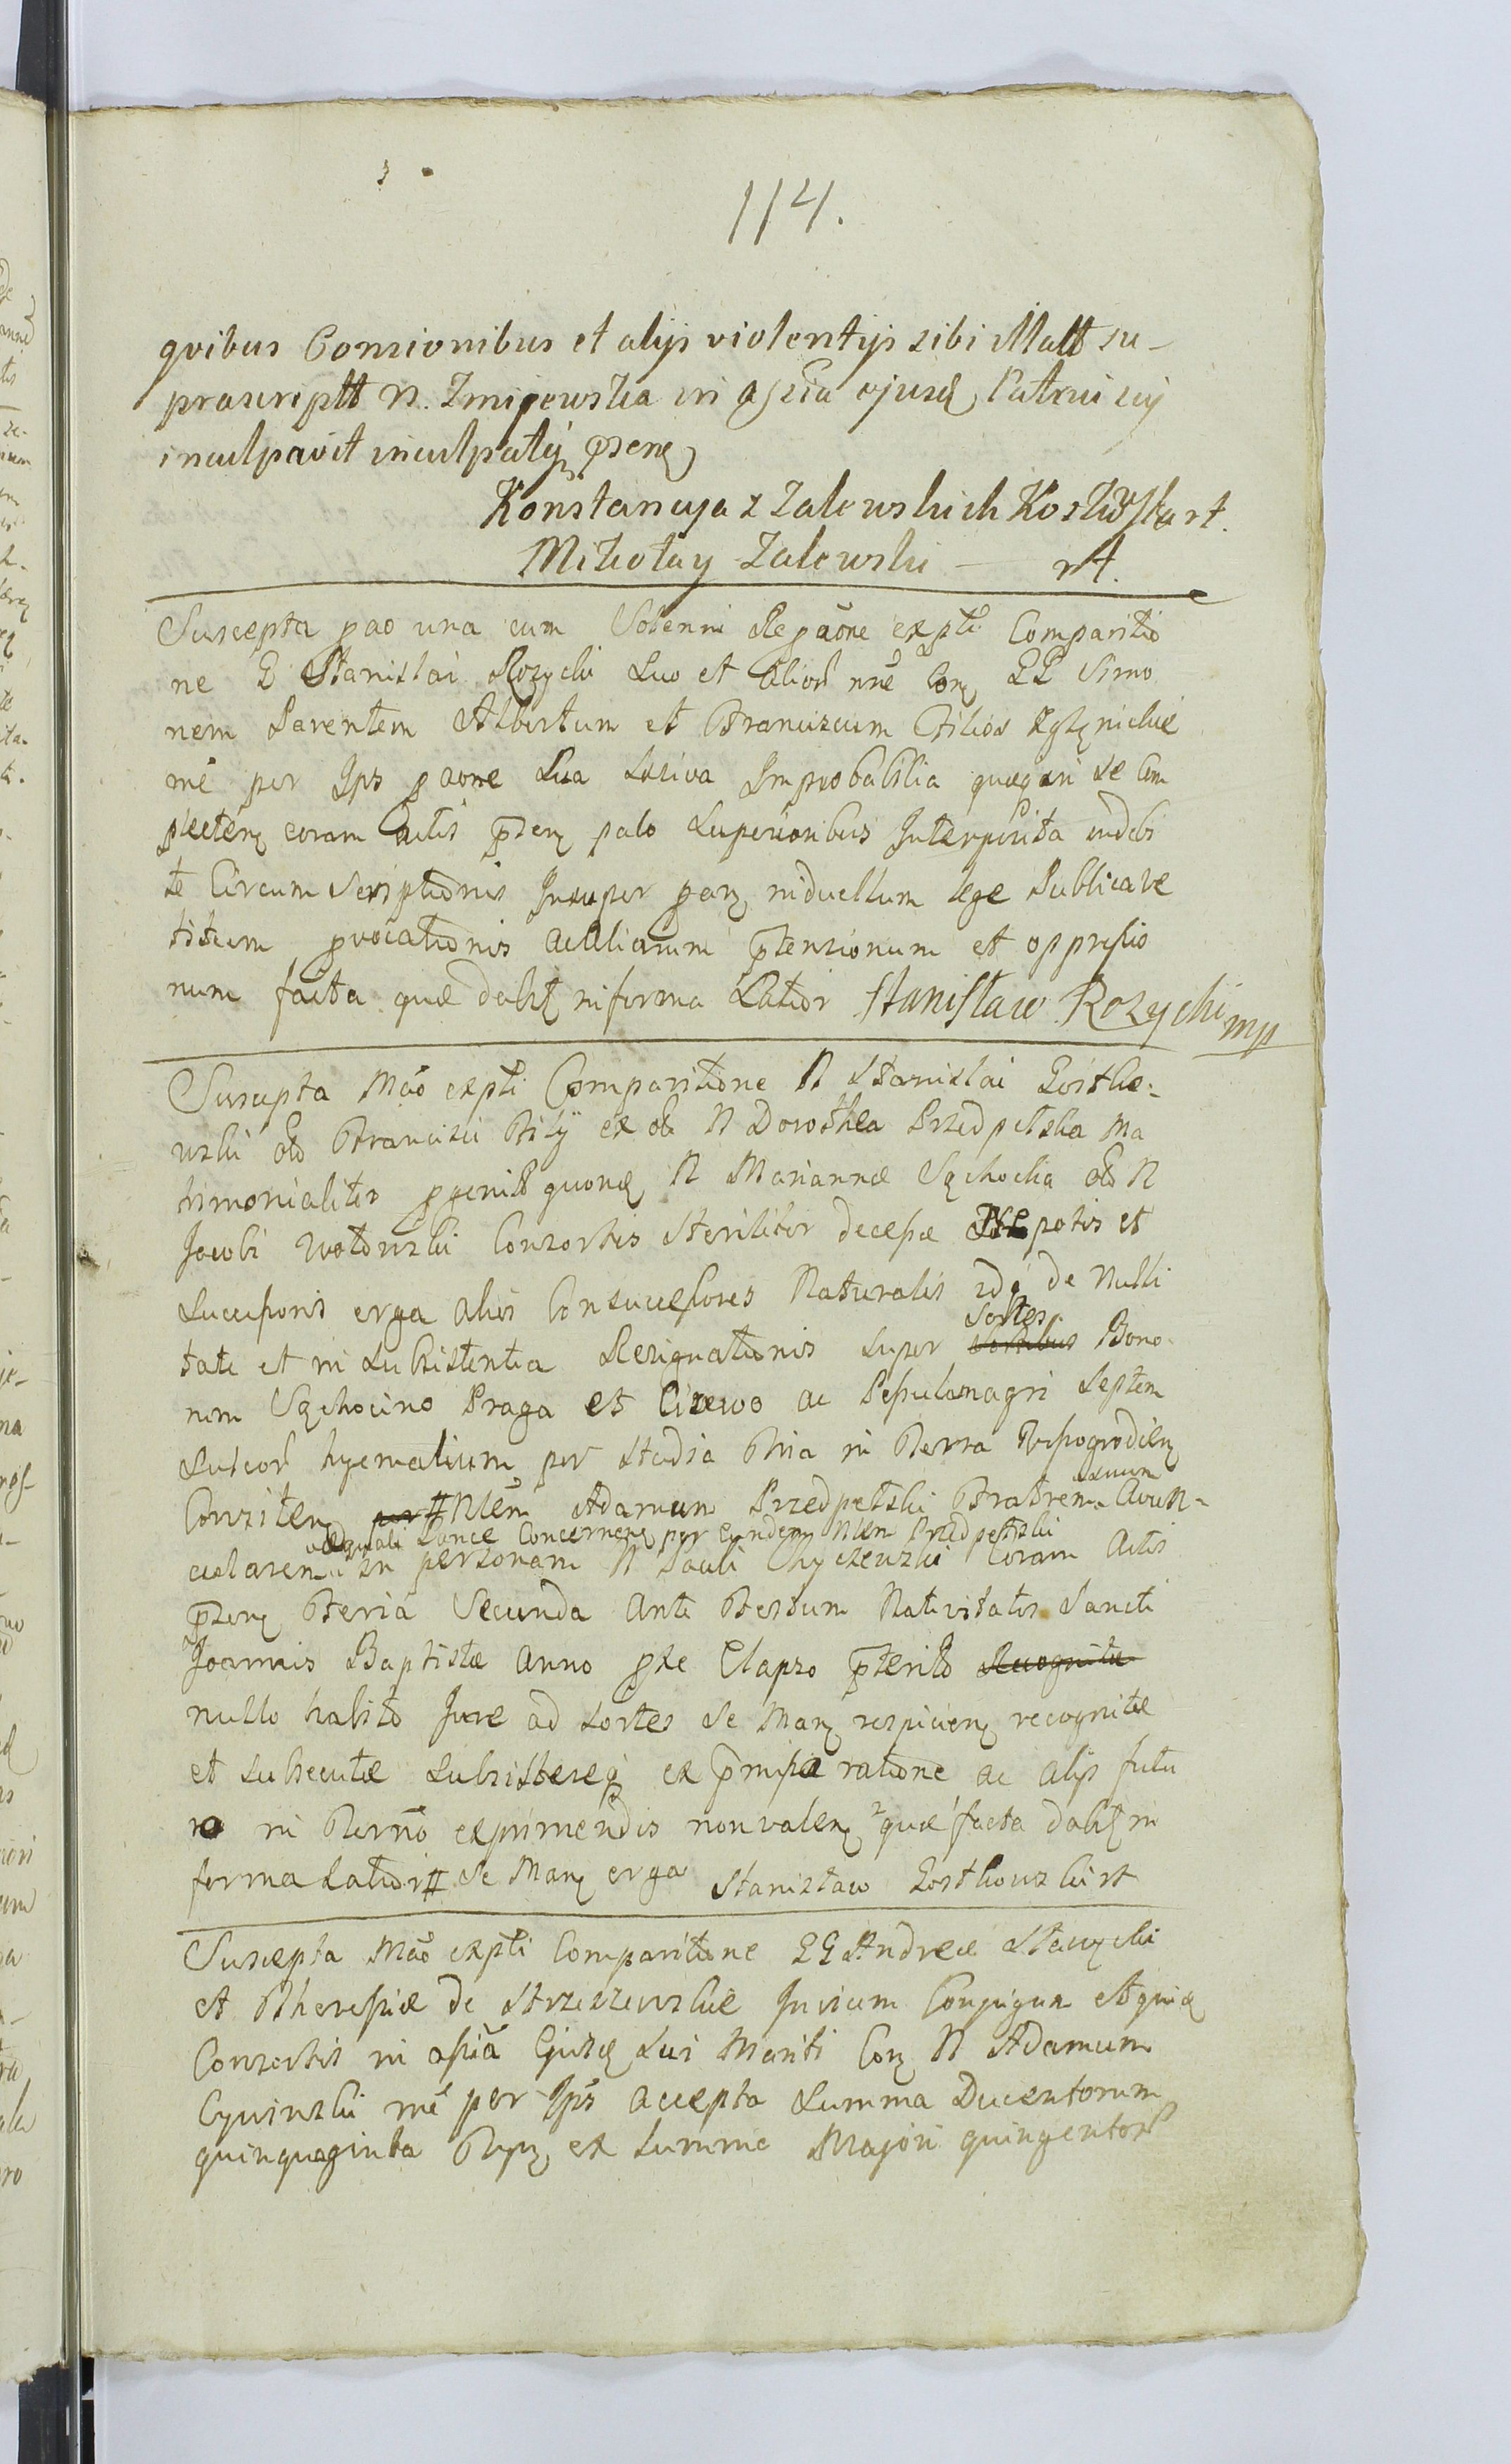 114.
quibus Consionibus et alijs violentijs sibi illatt su-
prascriptt N. Zmijewska in assia ejusd Patrui sui
inculpavit inculpatq pseng
Konstancyja z Zalewskich Kosko Skart.
Mikołay Zalewski - rt.
Suscepta pao una cum Solenni Repaone expti Comparitio
ne G Stanislai Rozycki Suo et alior nne Cong GG Simo
nem Parentem Albertum et Franciscum Filios
me per Ips paone Sua Lesiva Improbabilia quaeq in se Com
plecteng coram Actis pseng palo Superioribus Interposita indebi
te Circum Scriptionis Insuper peng in duellum lege Publica ve
titum pvocationis ac aliarum ptensionum et oppressio
num facta quae dabit in forma Latior Stanisław Rozycki mp
Suscepta Mao expti Comparitione N Stanislai Gostko-
wski olo Francisci Filij ex olo N Dorothea Przedpelska ma
trimonialiter pgenit quong N Mariannae Sąchocka olo N
Jacobi Wołowski Consortis steriliter decessae Nepotis et
Successoris erga alios Consuccessores Naturalis de Nulli
tate et in Subsistentia Resignationis super Sortes sortibus Bono
rum Sąchocino Praga et Cizewo ac Septem
Suscor hyematium per Studia Tria in Terra Wyszogrodieng
Consisten per # Nlem Adamum Przedpelski Fratrem Suum Avun-
cularem aequali Lance Concerneng per eundem Nlem Przedpelski
in personam N Pauli Chyczewski Coram Actis
pseng Feria Secunda Ante Festum Nativitatis Sancti
Joannis Baptistae Anno pxe Elapso pterito Recognita
nullo habito Jure ad sortes se Mang respicieng recognitae
et subsecutae subsistereq ex pmissa ratione ac alijs futu
ro in Termo exprimendis non valeng quae facta dabit in
forma Latiori # se Mang erga Stanisław Gostkowski rt
Suscepta Mao expti Comparitione GG Andreae Sławęcki
et Theresiae de Strzeszewskie Invicem Conjugum Atque
Consortis in assia Ejusd sui Mariti Cong N Adamum
Cywinski me per Ips accepta Summa Ducentorum
quinquaginta Flpng ex Summa Majori quingentor